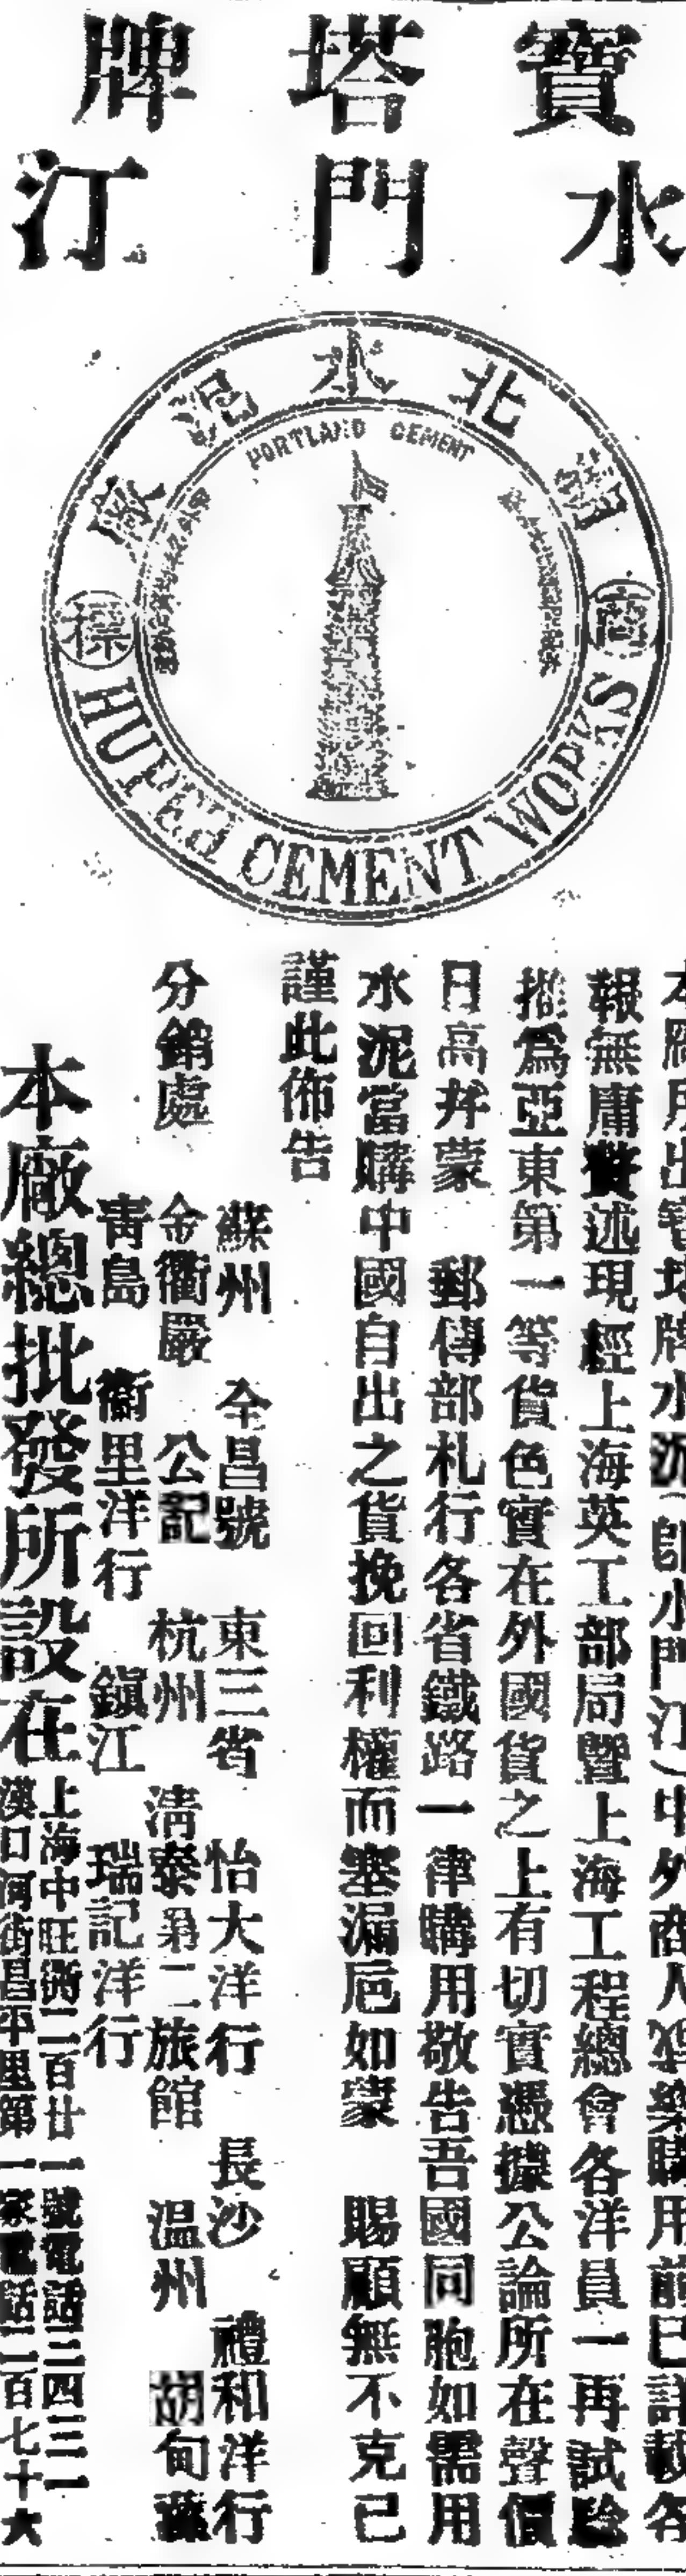 寶塔牌
水門汀
湖北水泥廠
PORTLAND CEMENT
商標
HUPEH CEMENT WORKS
本廠所出寶塔牌水泥(即水門汀)中外商人獲樂購用前已詳載各
報無庸贅述現經上海英工部局暨上海工程總會各洋員一再試驗
推為亞東第一等貨色實在外國貨之上有切實憑據公論所在聲價
日高幷蒙 郵傳部札行各省鐵路一律購用敬告吾國同胞如需用
水泥當購中國自出之貨挽回利權而塞漏巵如蒙 賜顧無不克己
謹此佈告
蘇州 全昌號 東三省 怡大洋行 長沙 禮和洋行
分銷處 金衢嚴 公記 杭州 淸泰第二旅館 温州 胡甸蓀
靑島 衛里洋行 鎭江 瑞記洋行
本廠總批發所設在
上海中旺街二百廿一號電話三四三一
漢口河街昌平里第一家電話二百七十六